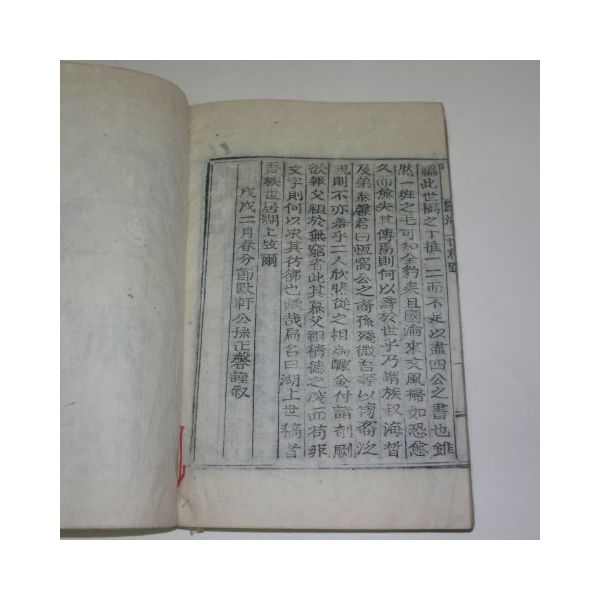 編此世稿之丁推一二而不足以盡四公之書也雖
然一班之毛可知全豹矣且國淪來文風掃如恐愈
久而愈失其傳焉則何以壽於世乎乃謂族叔海晳
及弟泰馨君曰恆窩公之裔孫殘微吾等以傍裔泛
規則不亦羞乎二人欣然從之相與醵金付諸剞劂
欲報父祖於無窮者此其慕父祖積德之深而苟非
文字則何以求其彷彿也歟哉扁名曰湖上世稿者
吾族世居湖上故爾
戊戌二月春分節默軒公孫正馨謹叙